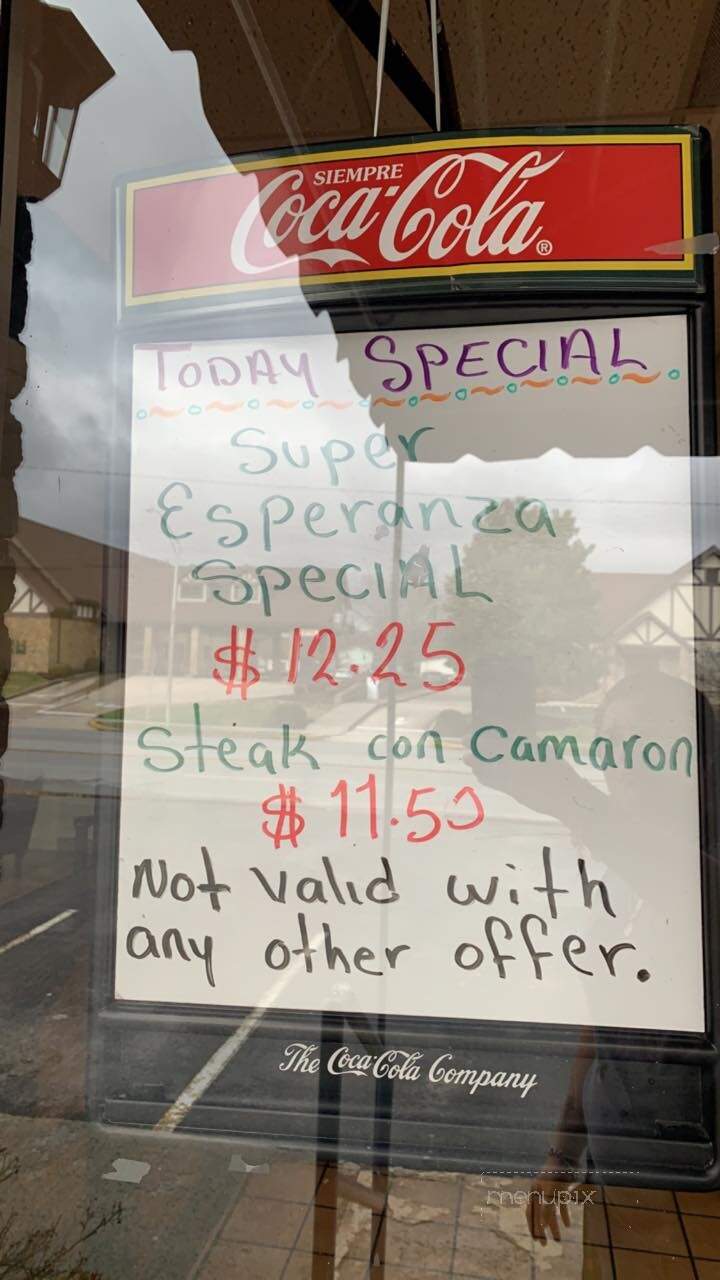 SIEMPRE
Coca-Cola®
TODAY SPECIAL
Super
Esperanza
SPECIAL
$12.25
Steak con Camaron
$11.50
Not valid with
any other offer.
The Coca-Cola Company
menupix